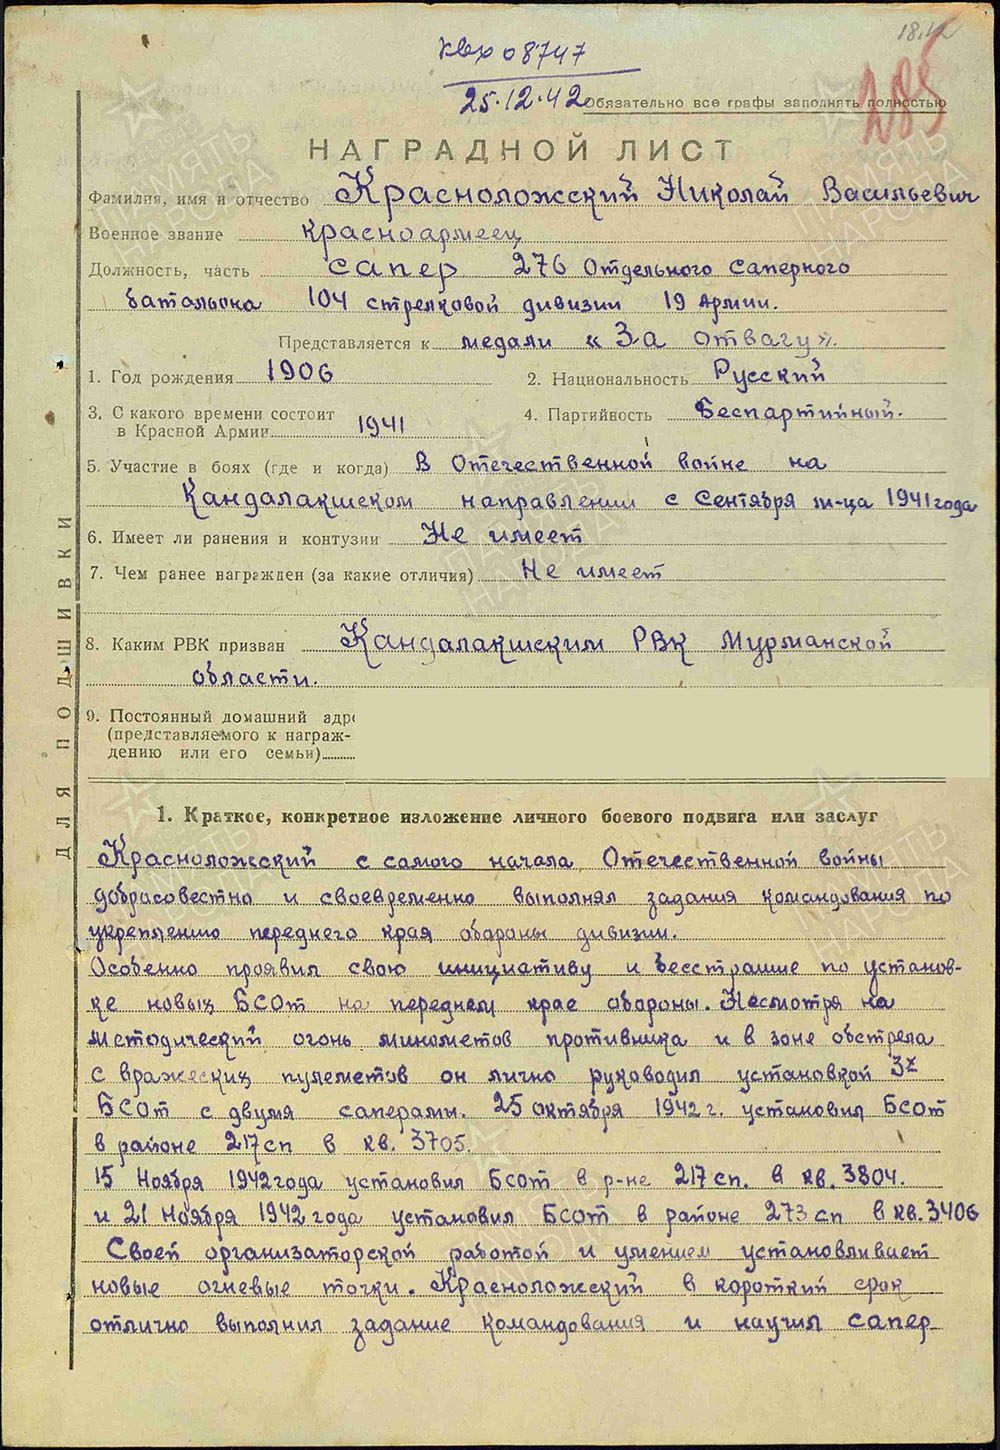 18.12
квх 08747
25.12.42
285
Обязательно все графы заполнять полностью
НАГРАДНОЙ ЛИСТ
Фамилия, имя и отчество Красноложский Николай Васильевич
Военное звание красноармеец
Должность, часть сапер 276 Отдельного саперного
батальона 104 стрелковой дивизии 19 Армии.
Представляется к медали « За отвагу».
1. Год рождения 1906 2. Национальность Русский
3. С какого времени состоит
в Красной Армии 1941 4. Партийность Беспартийный.
5. Участие в боях (где и когда) В Отечественной войне на
Кандалакшском направлении с Сентября м-ца 1941 года
6. Имеет ли ранения и контузии Не имеет
7. Чем ранее награжден (за какие отличия) Не имеет
8. Каким РВК призван Кандалакшским РВК Мурманской
области.
9. Постоянный домашний адре
(представляемого к награж-
дению или его семьи)
ДЛЯ ПОДШИВКИ
1. Краткое, конкретное изложение личного боевого подвига или заслуг
Красноложский с самого начала Отечественной войны
добрасовестно и своевременно выполнял задания командования по
укреплению переднего края обараны дивизии.
Особенно проявил свою инициативу и бесстрашие по установ-
ке новых БСОт на переднем крае обараны. Несмотря на
методический огонь минометов противника и в зоне обстрела
с вражеских пулеметов он лично руководил установкой 3х
БСОт с двумя саперамы. 25 октября 1942 г. установил БСОт
в районе 217 сп в кв. 3705.
15 Ноября 1942 года установил БСОт в р-не 217 сп. в кв. 3804.
и 21 Ноября 1942 года установил БСОт в районе 273 сп в кв. 3406
Своей организаторской работой и умением установливает
новые огневые точки. Красноложский в короткий срок
отлично выполнил задание командования и научил сапер-
ПАМЯТЬ НАРОДА